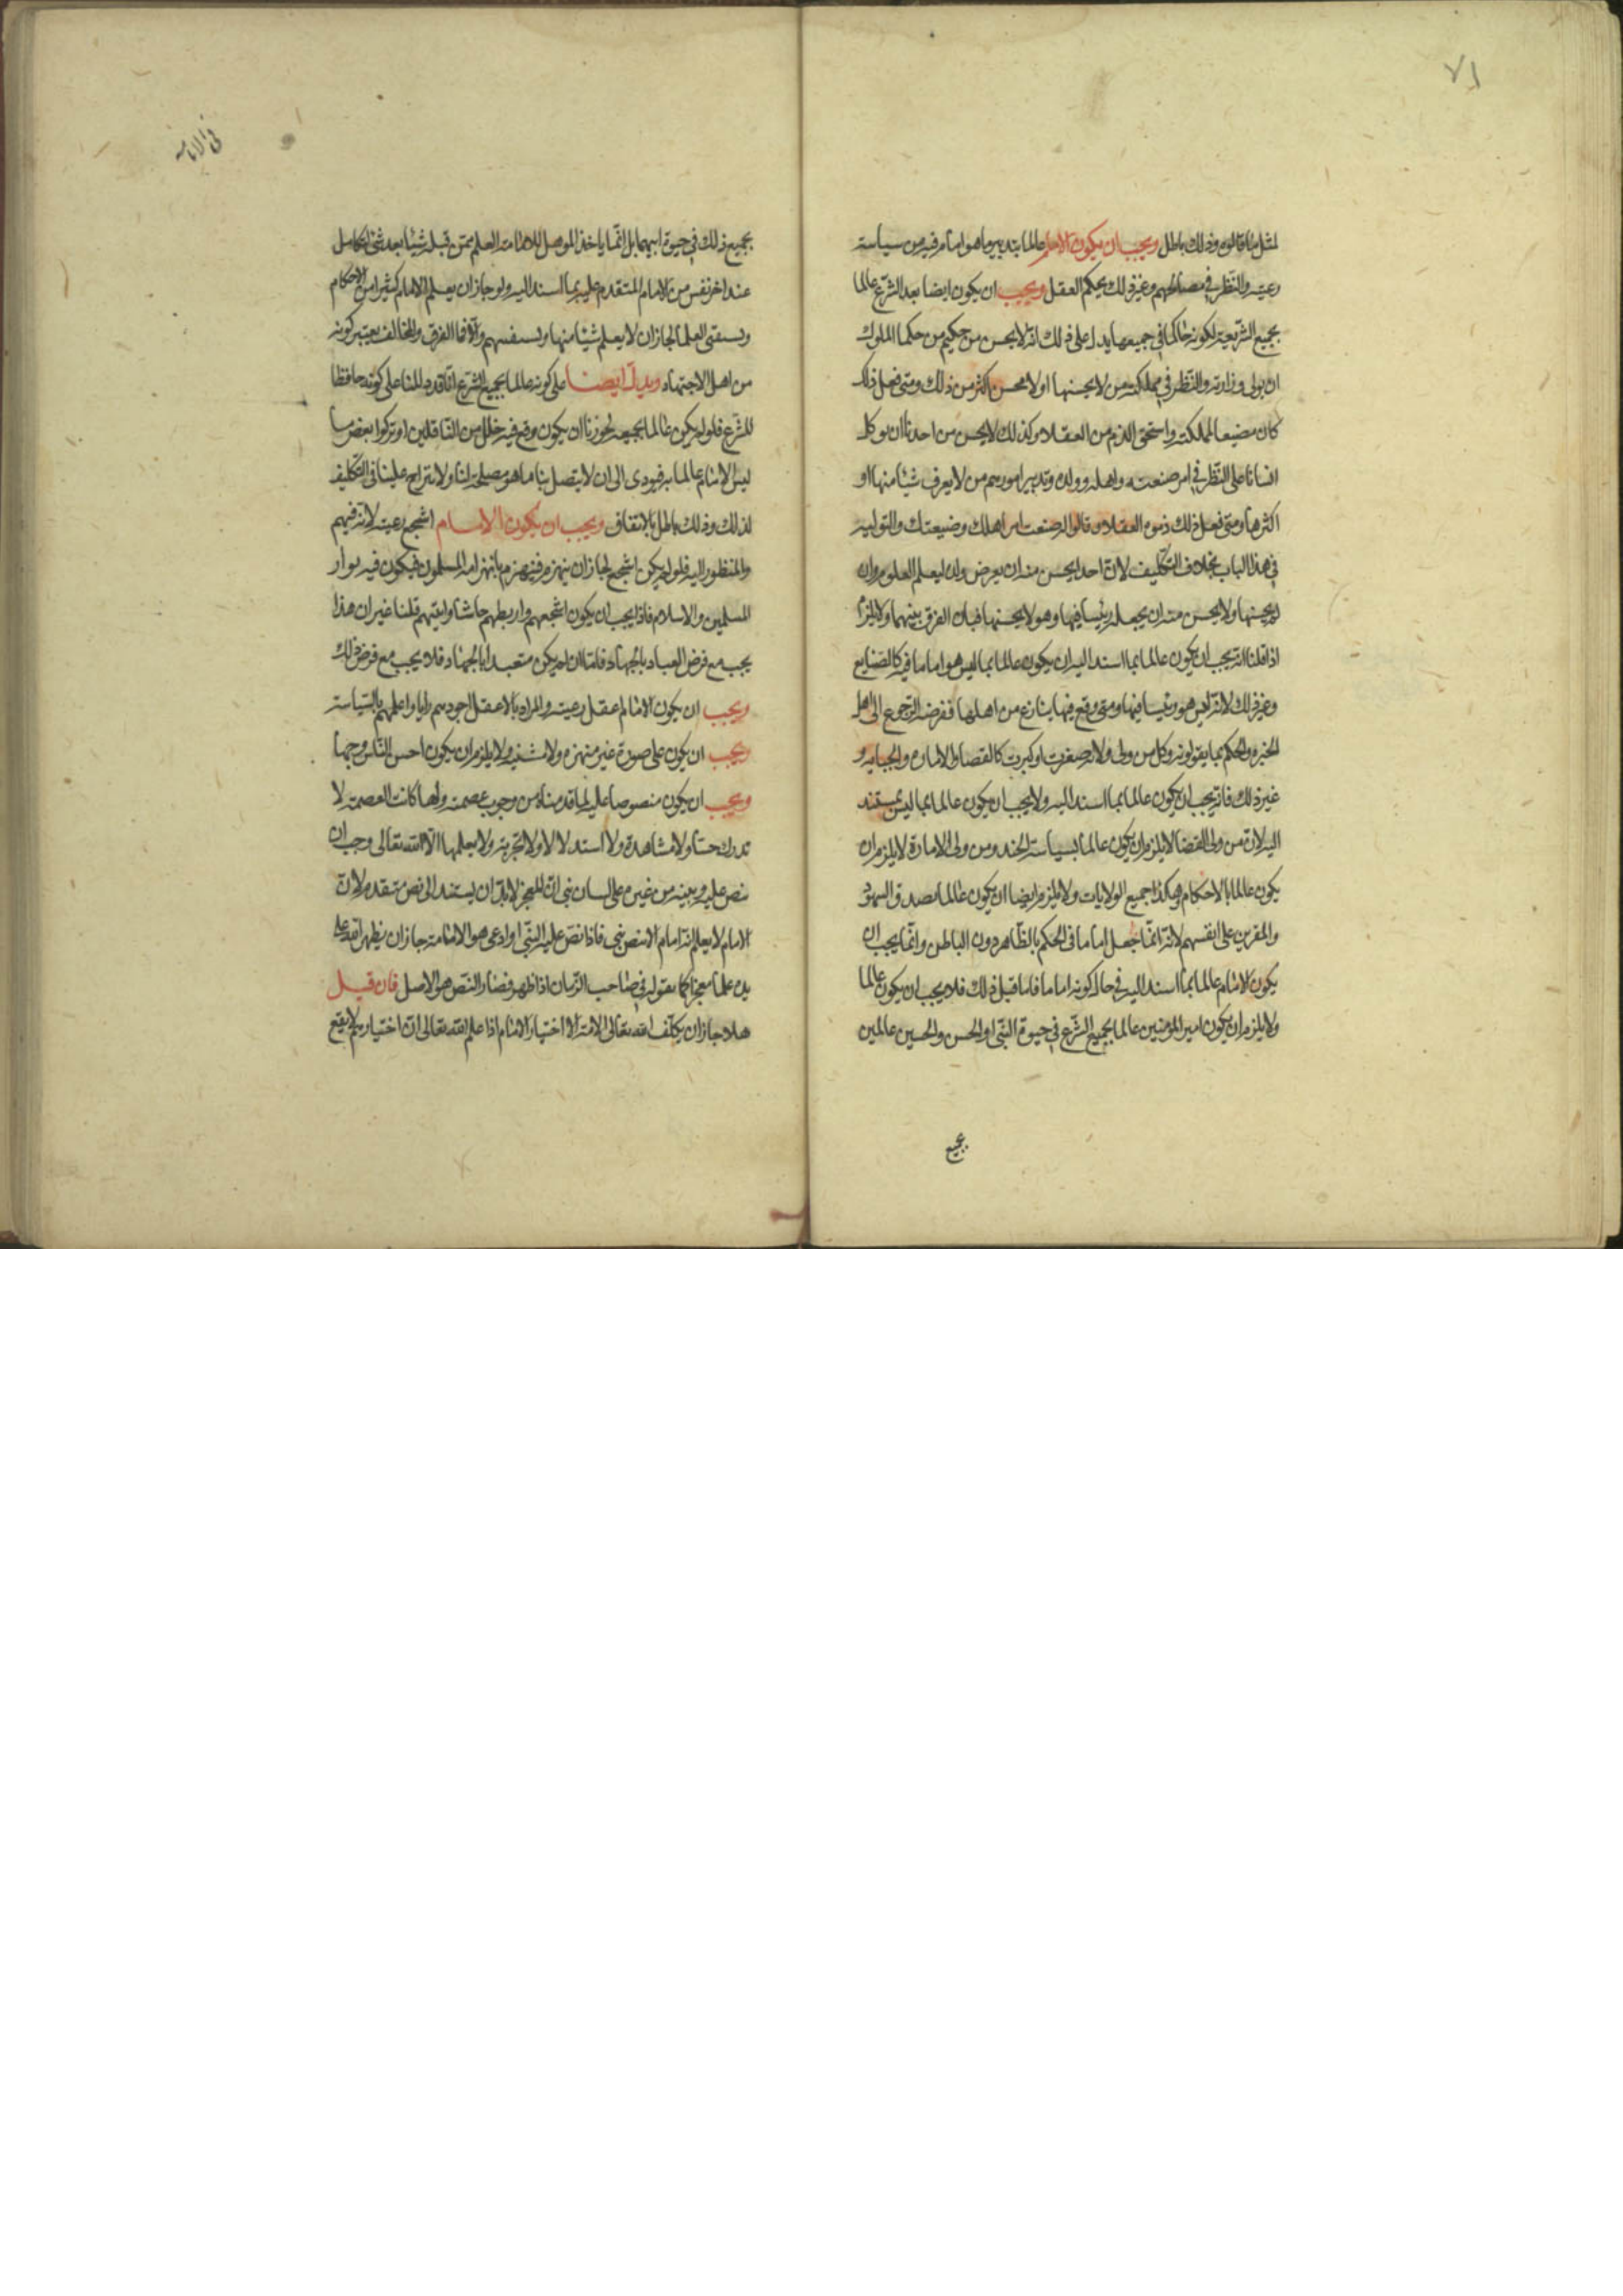 ٧١
لمثل ما قالوه وذلك باطل ويجب ان يكون الامام عالما بتدبير ما هو امام فيه من سياسة
رعيته والنظر في مصالحهم وغير ذلك بحكم العقل ويجب ان يكون ايضا بعد الشرع عالما
بجميع الشريعة لكونه حاكما في جميعها يدل على ذلك انه لا يحسن من حكيم من حكما الملوك
ان يولى وزارته والنظر في مملكته من لا يحسنها او لا يحسن اكثر من ذلك ومتى فعل ذلك
كان مضيعا لمملكته واستحق الذم من العقلا وكذلك لا يحسن من احدنا ان يوكل
انسانا على النظر في امر صنعته واهله وولده وتدبير امورهم من لا يعرف شيئا منها او
اكثرها ومتى فعل ذلك ذموه العقلا وقالوا له ضيعت امر اهلك وضيعتك والتولية
في هذا الباب بخلاف التكليف لان احدا يحسن منه ان يعرض ولده ليعلم العلوم وان
لم يحسنها ولا يحسن منه ان يجعله رئيسا فيها وهو لا يحسنها فبان الفرق بينهما ولا يلزم
اذا قلنا انه يجب ان يكون عالما بما اسند اليه ان يكون عالما بما ليس هو اماما فيه كالصنايع
وغير ذلك لانه ليس هو رئيسا فيها ومتى وقع فيها ينازع من اهلها ففرضه الرجوع الى اهل
الخبره والحكم بما يقولونه وكل من ولى ولاية صغرت او كبرت كالقضا والاماره والجبايه و
غير ذلك فانه يجب ان يكون عالما بما اسند اليه ولا يجب ان يكون عالما بما ليس يستند
اليه لان من ولى القضا لا يلزم ان يكون عالما بسياسة الجند ومن ولى الامارة لا يلزم ان
يكون عالما بالاحكام وهكذا جميع الولايات ولا يلزم ايضا ان يكون عالما بصدق الشهود
والمقرين على انفسهم لانه انما جعل اماما في الحكم بالظاهر دون الباطن وانما يجب ان
يكون الامام عالما بما اسند اليه في حال كونه اماما فاما قبل ذلك فلا يجب ان يكون عالما
ولا يلزم ان يكون امير المؤمنين عالما بجميع الشرع في حيوة النبى او الحسن والحسين عالمين
بجميع
في الامامة
بجميع ذلك في حيوة ابيهما بل انما ياخذ الموهل للامامة العلم ممن قبله شيئا بعد شئ ليتكامل
عند اخر نفس من الامام المتقدم عليه بما اسند اليه ولو جاز ان يعلم الامام كثيرا من الاحكام
ويستفتى العلما لجاز ان لا يعلم شيئا منها ويستفتيهم والا فما الفرق والمخالف يعتبر كونه
من اهل الاجتهاد ويدل ايضا على كونه عالما بجميع الشرع انا قد دللنا على كونه حافظا
للشرع فلو لم يكن عالما بجميعه لجوزنا ان يكون وقع فيه خلل من الناقلين او تركوا بعض ما
ليس الامام عالما به فيودى الى ان لا يتصل بنا ما هو مصلحة لنا ولا تنزاح علينا في التكليف
لذلك وذلك باطل بالاتفاق ويجب ان يكون الامام اشجع رعيته لانه فيهم
والمنظور اليه فلو لم يكن اشجع لجاز ان ينهزم فينهزم بانهزامه المسلمون فيكون فيه بوار
المسلمين والاسلام فاذا يجب ان يكون اشجعهم واربطهم جاشا واثبتهم قلبا غير ان هذا
يجب مع فرض العباد بالجهاد فاما ان لم يكن متعبدا بالجهاد فلا يجب مع فرض ذلك
ويجب ان يكون الامام اعقل رعيته والمراد بالاعقل اجودهم رايا واعلمهم بالسياسة
ويجب ان يكون على صورة غير منفرة ولا مشينه ولا يلزم ان يكون احسن الناس وجها
ويجب ان يكون منصوصا عليه لما قدمناه من وجوب عصمته ولما كانت العصمة لا
تدرك حسا ولا مشاهدة ولا استدلالا ولا تجربة ولا يعلمها الا الله تعالى وجب ان
ينص عليه ويبينه من غيره على لسان نبى لان المعجز لابد ان يستند الى نص متقدم لان
الامام لا يعلم انه امام الا بنص نبى فاذا نص عليه النبى او ادعى هو الامامة جاز ان يظهر الله على
يده علما معجزا كما نقوله في صاحب الزمان اذا ظهر فصار النص هو الاصل فان قيل
هلا جاز ان يكلف الله تعالى الامة اختيار الامام اذا علم الله تعالى ان اختيارهم لا يقع